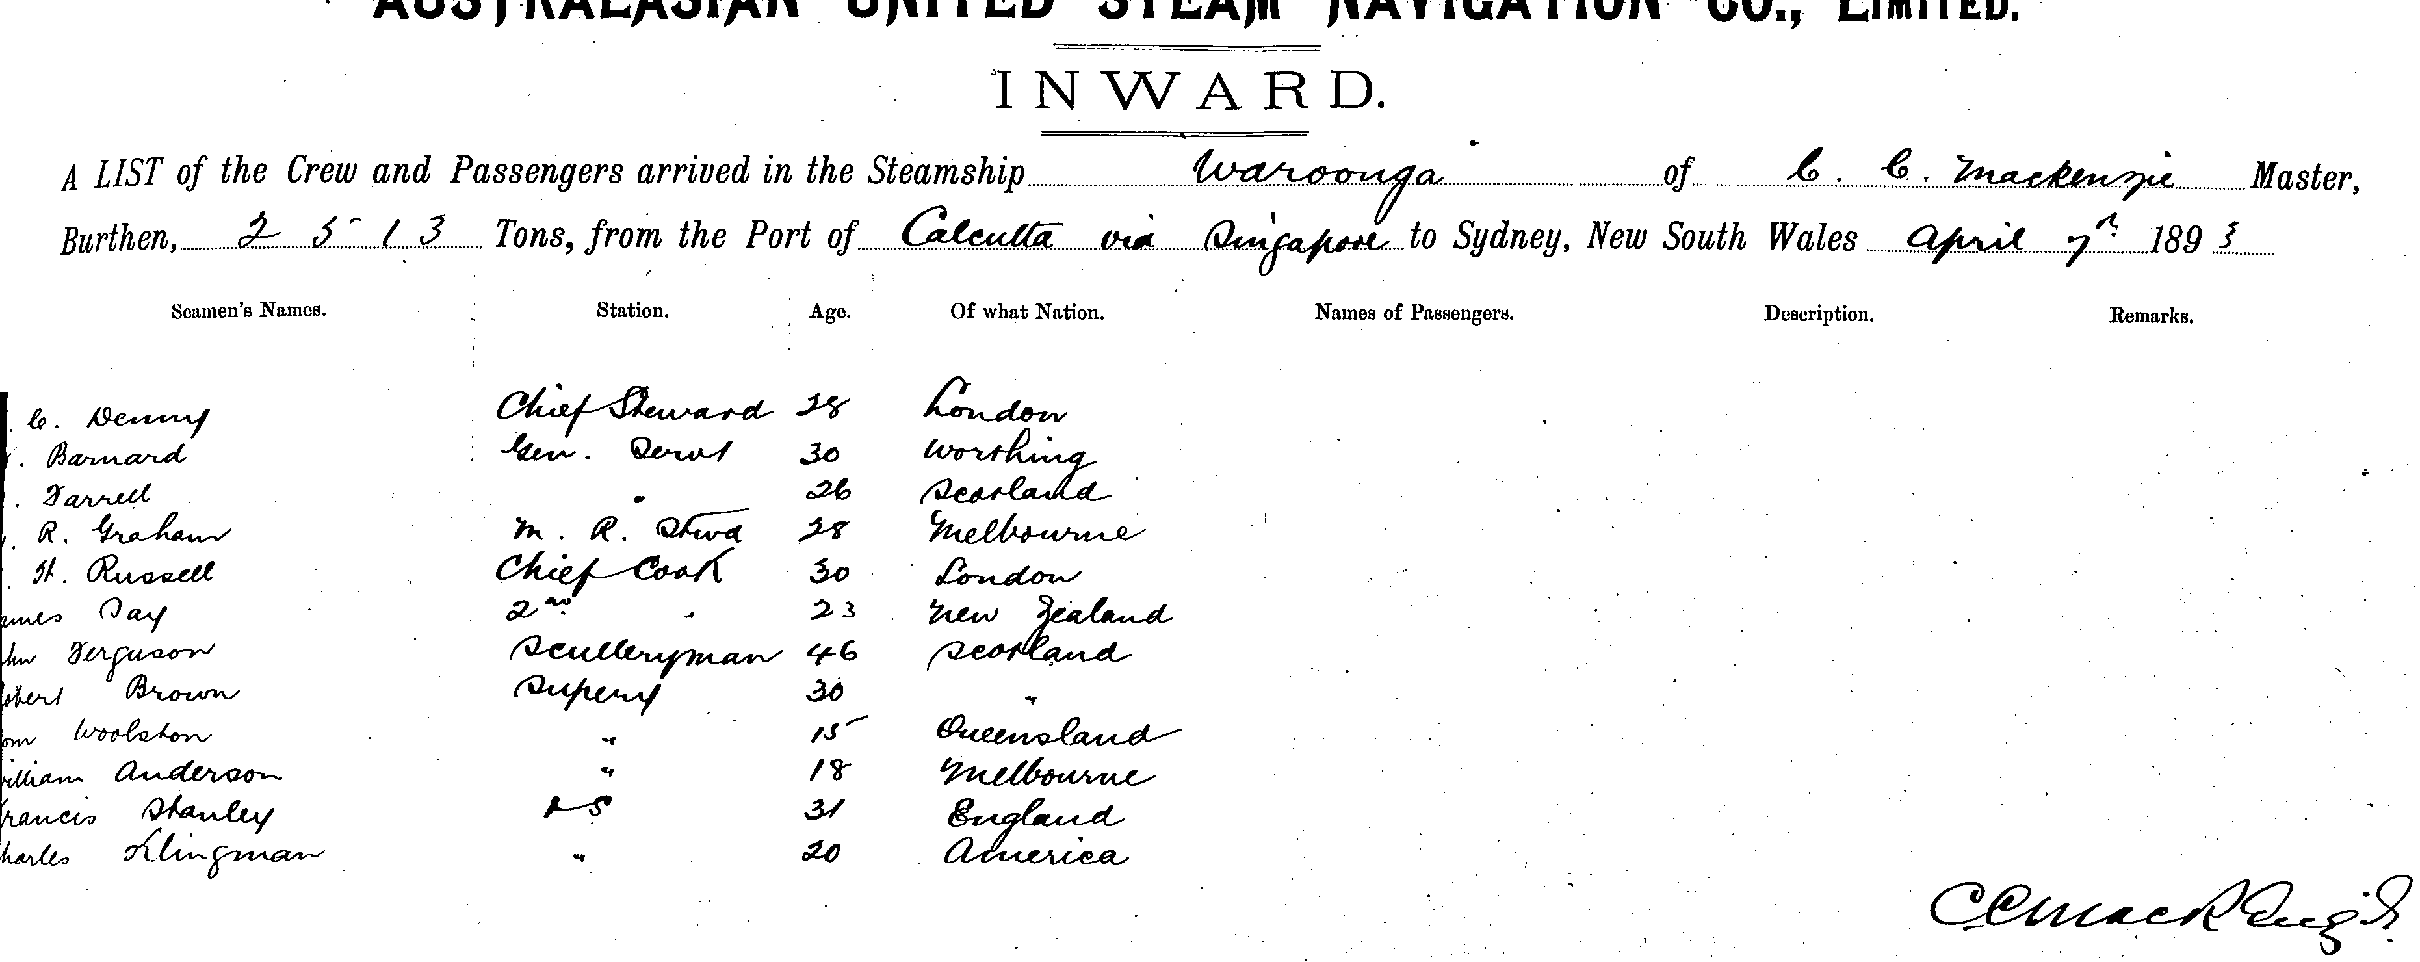 AUSTRALASIAN UNITED STEAM NAVIGATION CO., LIMITED.
INWARD.
A LIST of the Crew and Passengers arrived in the Steamship Waroonga of C. C. Mackenzie Master,
Burthen, 2513 Tons, from the Port of Calcutta via Singapore to Sydney, New South Wales April 7th 1893
Seamen's Names. Station. Age. Of what Nation. Names of Passengers. Description. Remarks.
C. Denny Chief Steward 28 London
Barnard Gen. Servt 30 Worthing
Farrell " 26 Scotland
R. Graham M. R. Stwd 28 Melbourne
H. Russell Chief Cook 30 London
ames Day 2nd " 23 New Zealand
hn Ferguson Sculleryman 46 Scotland
obert Brown Supery 30 "
om Woolston " 15 Queensland
illiam Anderson " 18 Melbourne
rancis Stanley AS 31 England
harles Klingman " 20 America
C C Mackenzie